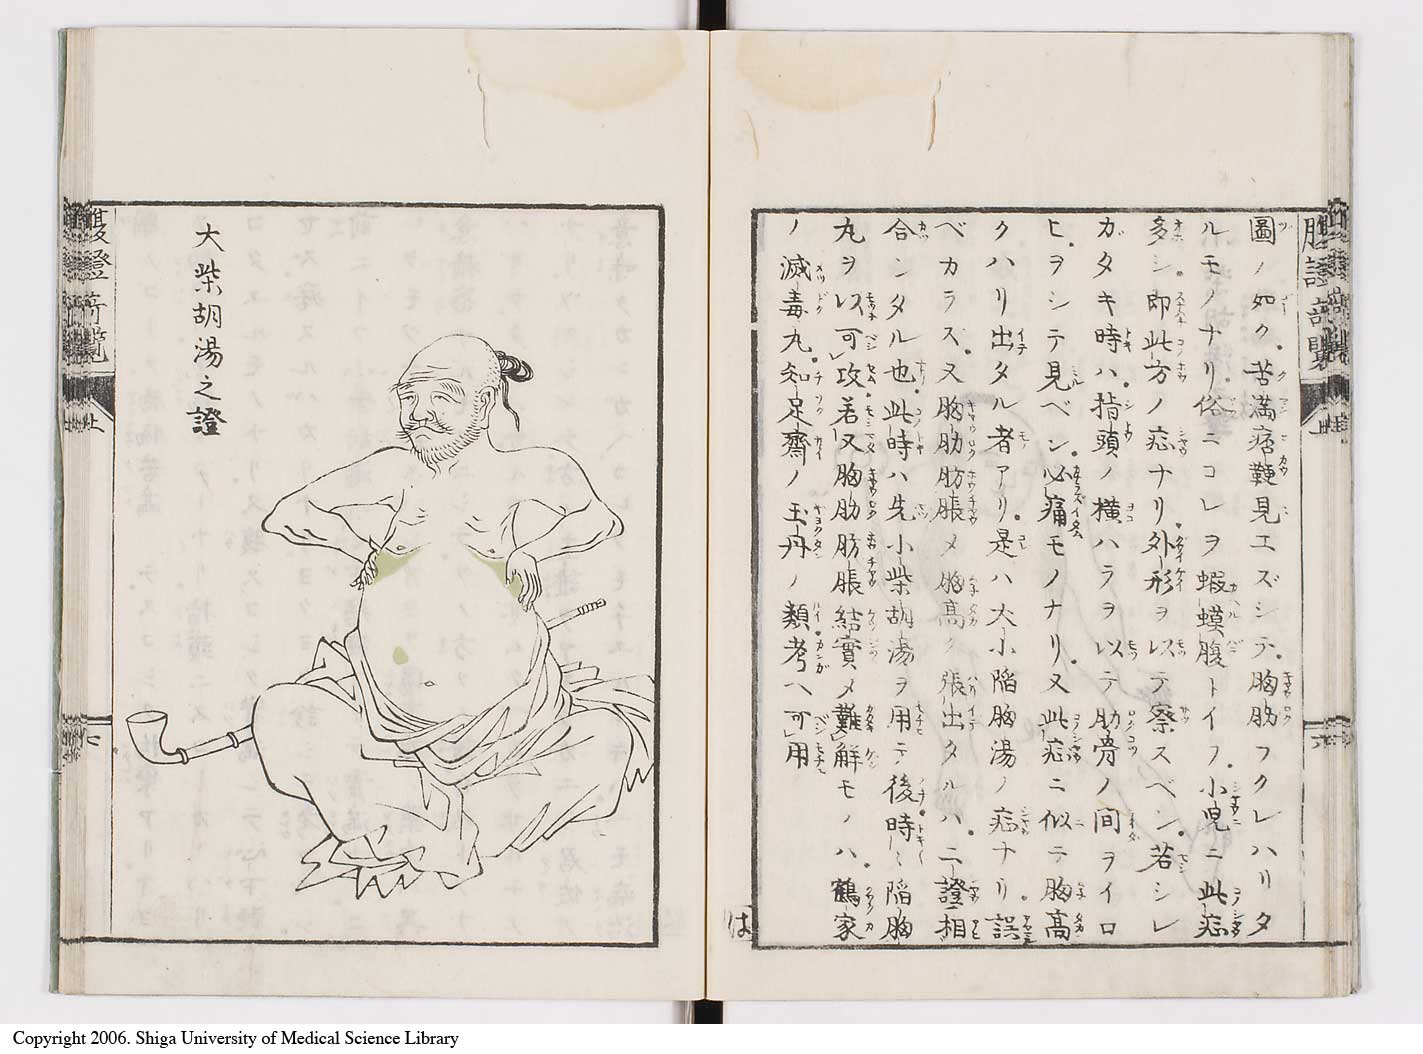 圖ノ如ク苦滿痞鞕見エズシテ胸脇フクレハリタ
ルモノナリ俗ニコレヲ蝦蟆腹トイフ小兒ニ此症
多シ即此方ノ症ナリ外形ヲ以テ察スベシ若シレ
ガタキ時ハ指頭ノ横ハラヲ以テ肋骨ノ間ヲイロ
ヒヲシテ見ベシ必痛モノナリ又此症ニ似テ胸高
クハリ出タル者アリ是ハ大小陷胸湯ノ症ナリ誤
ベカラス又胸肋肪脹メ胸高ク張出タルハ二證相
合シタル也此時ハ先小柴胡湯ヲ用テ後時〻陷胸
丸ヲ以可攻若又胸肋肪脹結實メ難解モノハ鶴家
ノ滅毒丸知足齋ノ玉丹ノ類考ヘ可用
は
大柴胡湯之證
Copyright 2006. Shiga University of Medical Science Library